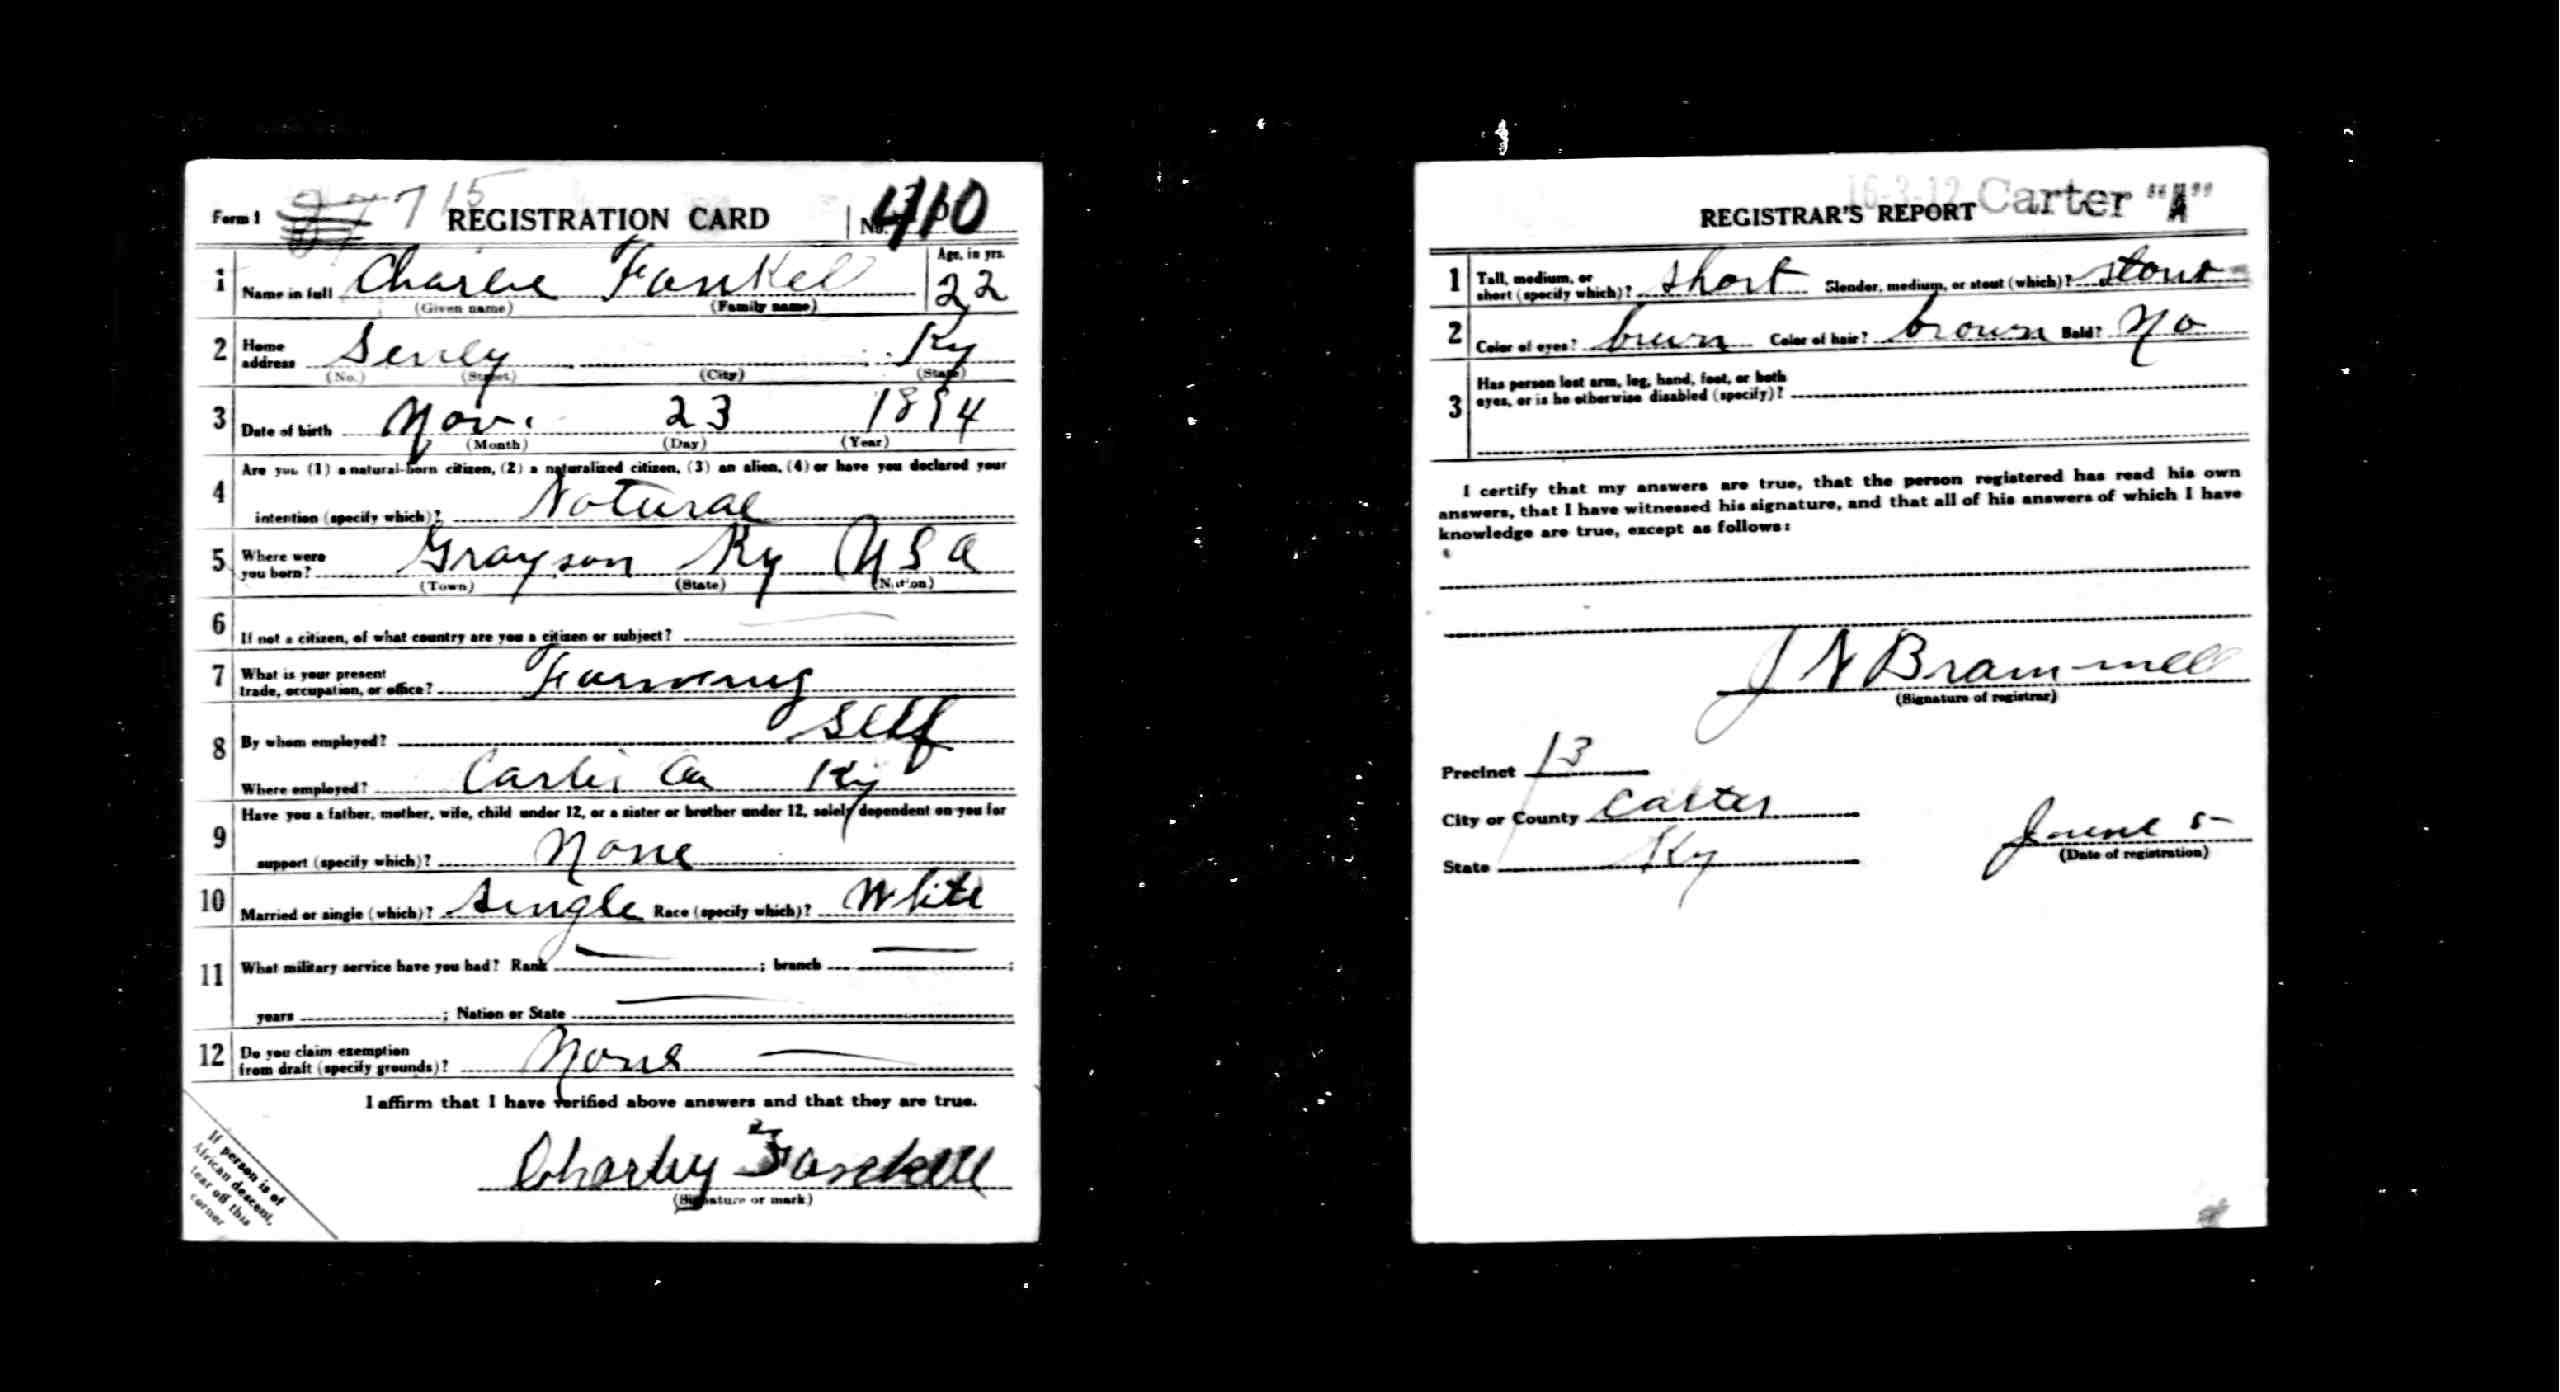 Form 1 715 REGISTRATION CARD No. 410
1 Name in full Charlie Fankell Age, in yrs. 22
(Given name) (Family name)
2 Home address Ky
(No.) (Street) (City) (State)
3 Date of birth Nov. 23 1894
(Month) (Day) (Year)
4 Are you (1) a natural-born citizen, (2) a naturalized citizen, (3) an alien, (4) or have you declared your
intention (specify which)? Natural
5 Where were you born? Grayson Ky U S A
(Town) (State) (Nation)
6 If not a citizen, of what country are you a citizen or subject?
7 What is your present trade, occupation, or office? Farming
8 By whom employed? Self
Where employed? Carter Co Ky
9 Have you a father, mother, wife, child under 12, or a sister or brother under 12, solely dependent on you for
support (specify which)? None
10 Married or single (which)? Single Race (specify which)? White
11 What military service have you had? Rank ; branch ;
years ; Nation or State
12 Do you claim exemption from draft (specify grounds)? None
I affirm that I have verified above answers and that they are true.
Charley
(Signature or mark)
If person is of
African descent,
tear off this
corner
16-3-12 Carter "A"
REGISTRAR'S REPORT
1 Tall, medium, or short (specify which)? short Slender, medium, or stout (which)? stout
2 Color of eyes? brown Color of hair? brown Bald? No
3 Has person lost arm, leg, hand, foot, or both
eyes, or is he otherwise disabled (specify)?
I certify that my answers are true, that the person registered has read his own
answers, that I have witnessed his signature, and that all of his answers of which I have
knowledge are true, except as follows:
J N Brammell
(Signature of registrar)
Precinct 13
City or County Carter
State Ky
June 5
(Date of registration)